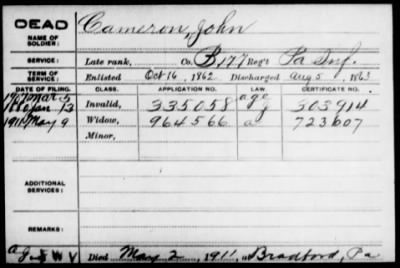 DEAD
NAME OF SOLDIER: Cameron, John
SERVICE: Late rank, Co. B, 177 Reg't Pa Inf.
TERM OF SERVICE: Enlisted Oct 16, 1862 Discharged Aug 5, 1863
DATE OF FILING. CLASS. APPLICATION NO. LAW CERTIFICATE NO.
Invalid, 335058 303914
1911 May 9 Widow, 964566 a 723607
Minor,
ADDITIONAL SERVICES:
REMARKS:
Died May 2, 1911, Bradford, Pa